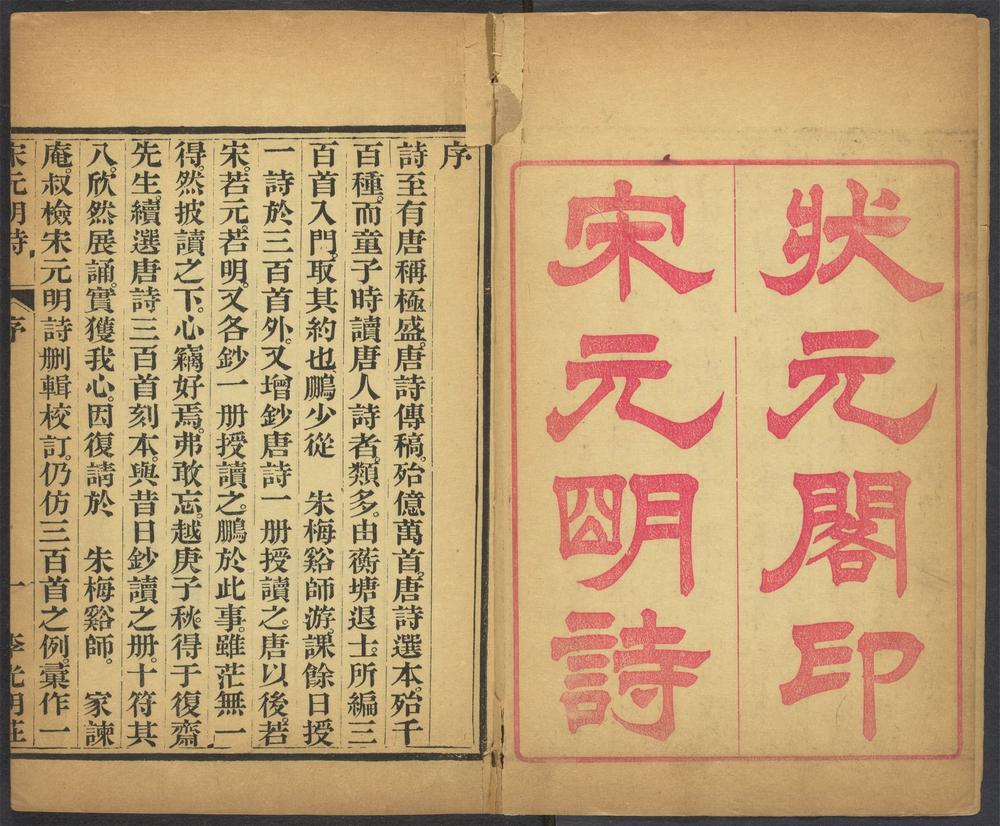 狀元閣印
宋元明詩
序
詩至有唐稱極盛。唐詩傳稿。殆億萬首。唐詩選本。殆千
百種。而童子時讀唐人詩者。類多。由蘅塘退士。所編三
百首入門。取其約也。鵬少從　朱梅谿師游。課餘日授
一詩於三百首外。又增鈔唐詩一册授讀之。唐以後。若
宋。若元。若明。又各鈔一册授讀之。鵬於此事。雖茫無一
得。然披讀之下。心竊好焉。弗敢忘。越庚子秋。得于復齋
先生。續選唐詩三百首刻本。與昔日鈔讀之册。十符其
八。欣然展誦。實獲我心。因復請於　朱梅谿師。　家諫
庵。叔檢宋元明詩刪輯校訂。仍仿三百首之例。彙作一
宋元明詩　序　一　李光明莊